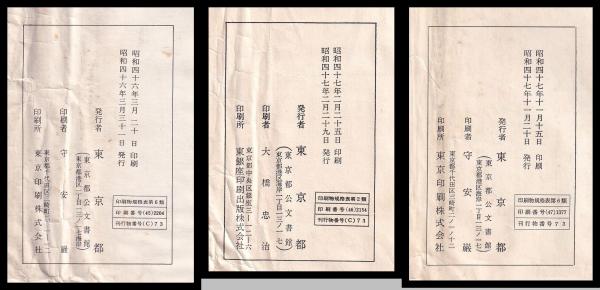 昭和四十六年三月二十日 印刷
昭和四十六年三月三十一日 発行
発行者 東京都
(東京都公文書館)
印刷者 守安巌
印刷所 東京印刷株式会社
印刷物規格表第6類
印刷番号(45)2204
刊行物番号(C)73
昭和四十七年二月二十五日 印刷
昭和四十七年二月二十九日 発行
発行者 東京都
(東京都公文書館)
(東京都港区海岸一丁目一三ノ一七)
印刷者 大橋忠治
東京都中央区銀座三-一二-六
印刷所 東銀座印刷出版株式会社
印刷物規格表第2類
印刷番号(46)2154
刊行物番号(C)73
昭和四十七年十一月十五日 印刷
昭和四十七年十一月二十日 発行
発行者 東京都
(東京都公文書館)
(東京都港区海岸一丁目一三ノ一七)
印刷者 守安巌
東京都千代田区三崎町二ノ一〇ノ一二
印刷所 東京印刷株式会社
印刷物規格表第6類
印刷番号(47)1377
刊行物番号 73